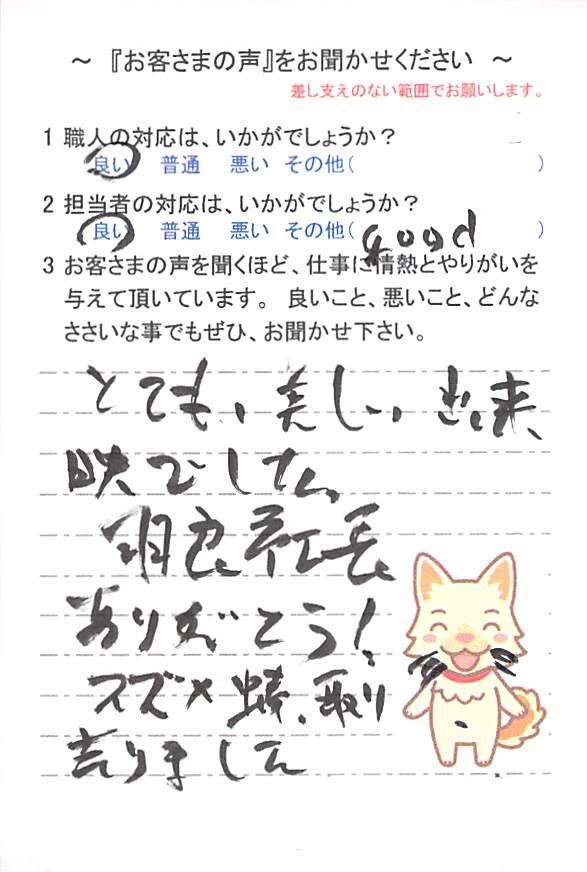 ～ 『お客さまの声』をお聞かせください ～
差し支えのない範囲でお願いします。
1 職人の対応は、いかがでしょうか？
良い 普通 悪い その他( )
2 担当者の対応は、いかがでしょうか？
良い 普通 悪い その他( good )
3 お客さまの声を聞くほど、仕事に情熱とやりがいを
与えて頂いています。 良いこと、悪いこと、どんな
ささいな事でもぜひ、お聞かせ下さい。
とても、美しい出来
映でした。
社長
ありがとう!
スズメ蜂、取り
去りました